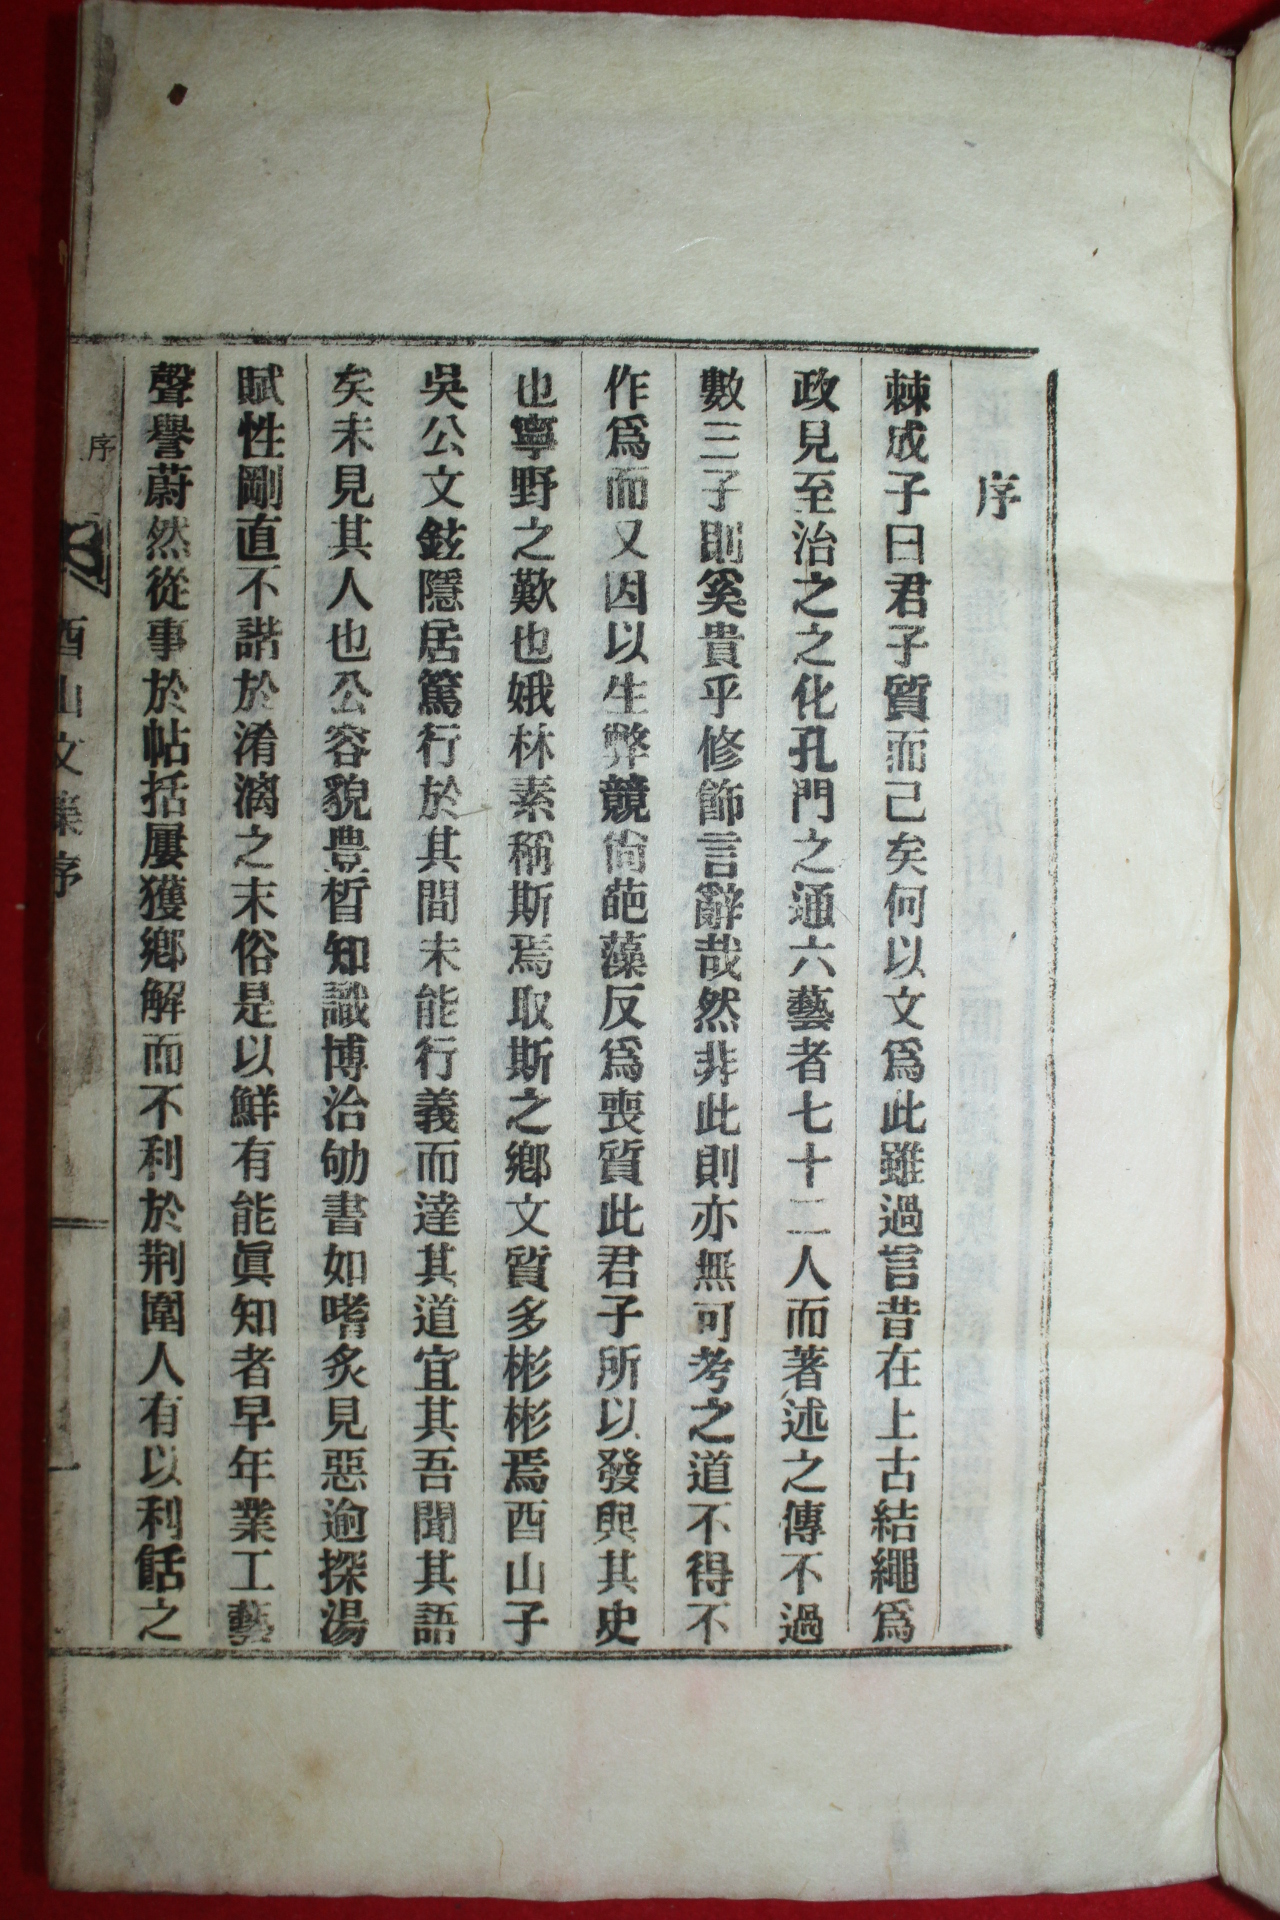 序
棘成子曰君子質而己矣何以文爲此雖過言昔在上古結繩爲
政見至治之之化孔門之通六藝者七十二人而著述之傳不過
數三子則奚貴乎修飾言辭哉然非此則亦無可考之道不得不
作爲而又因以生弊競尙葩藻反爲喪質此君子所以發與其史
也寧野之歎也娥林素稱斯焉取斯之鄉文質多彬彬焉酉山子
吳公文鉉隱居篤行於其間未能行義而達其道宜其吾聞其語
矣未見其人也公容貌豊晳知識博洽劬書如嗜炙見惡逾探湯
賦性剛直不諧於淆漓之末俗是以鮮有能眞知者早年業工藝
聲譽蔚然從事於帖括屢獲鄉解而不利於荆圍人有以利餂之
序
酉山文集序
一